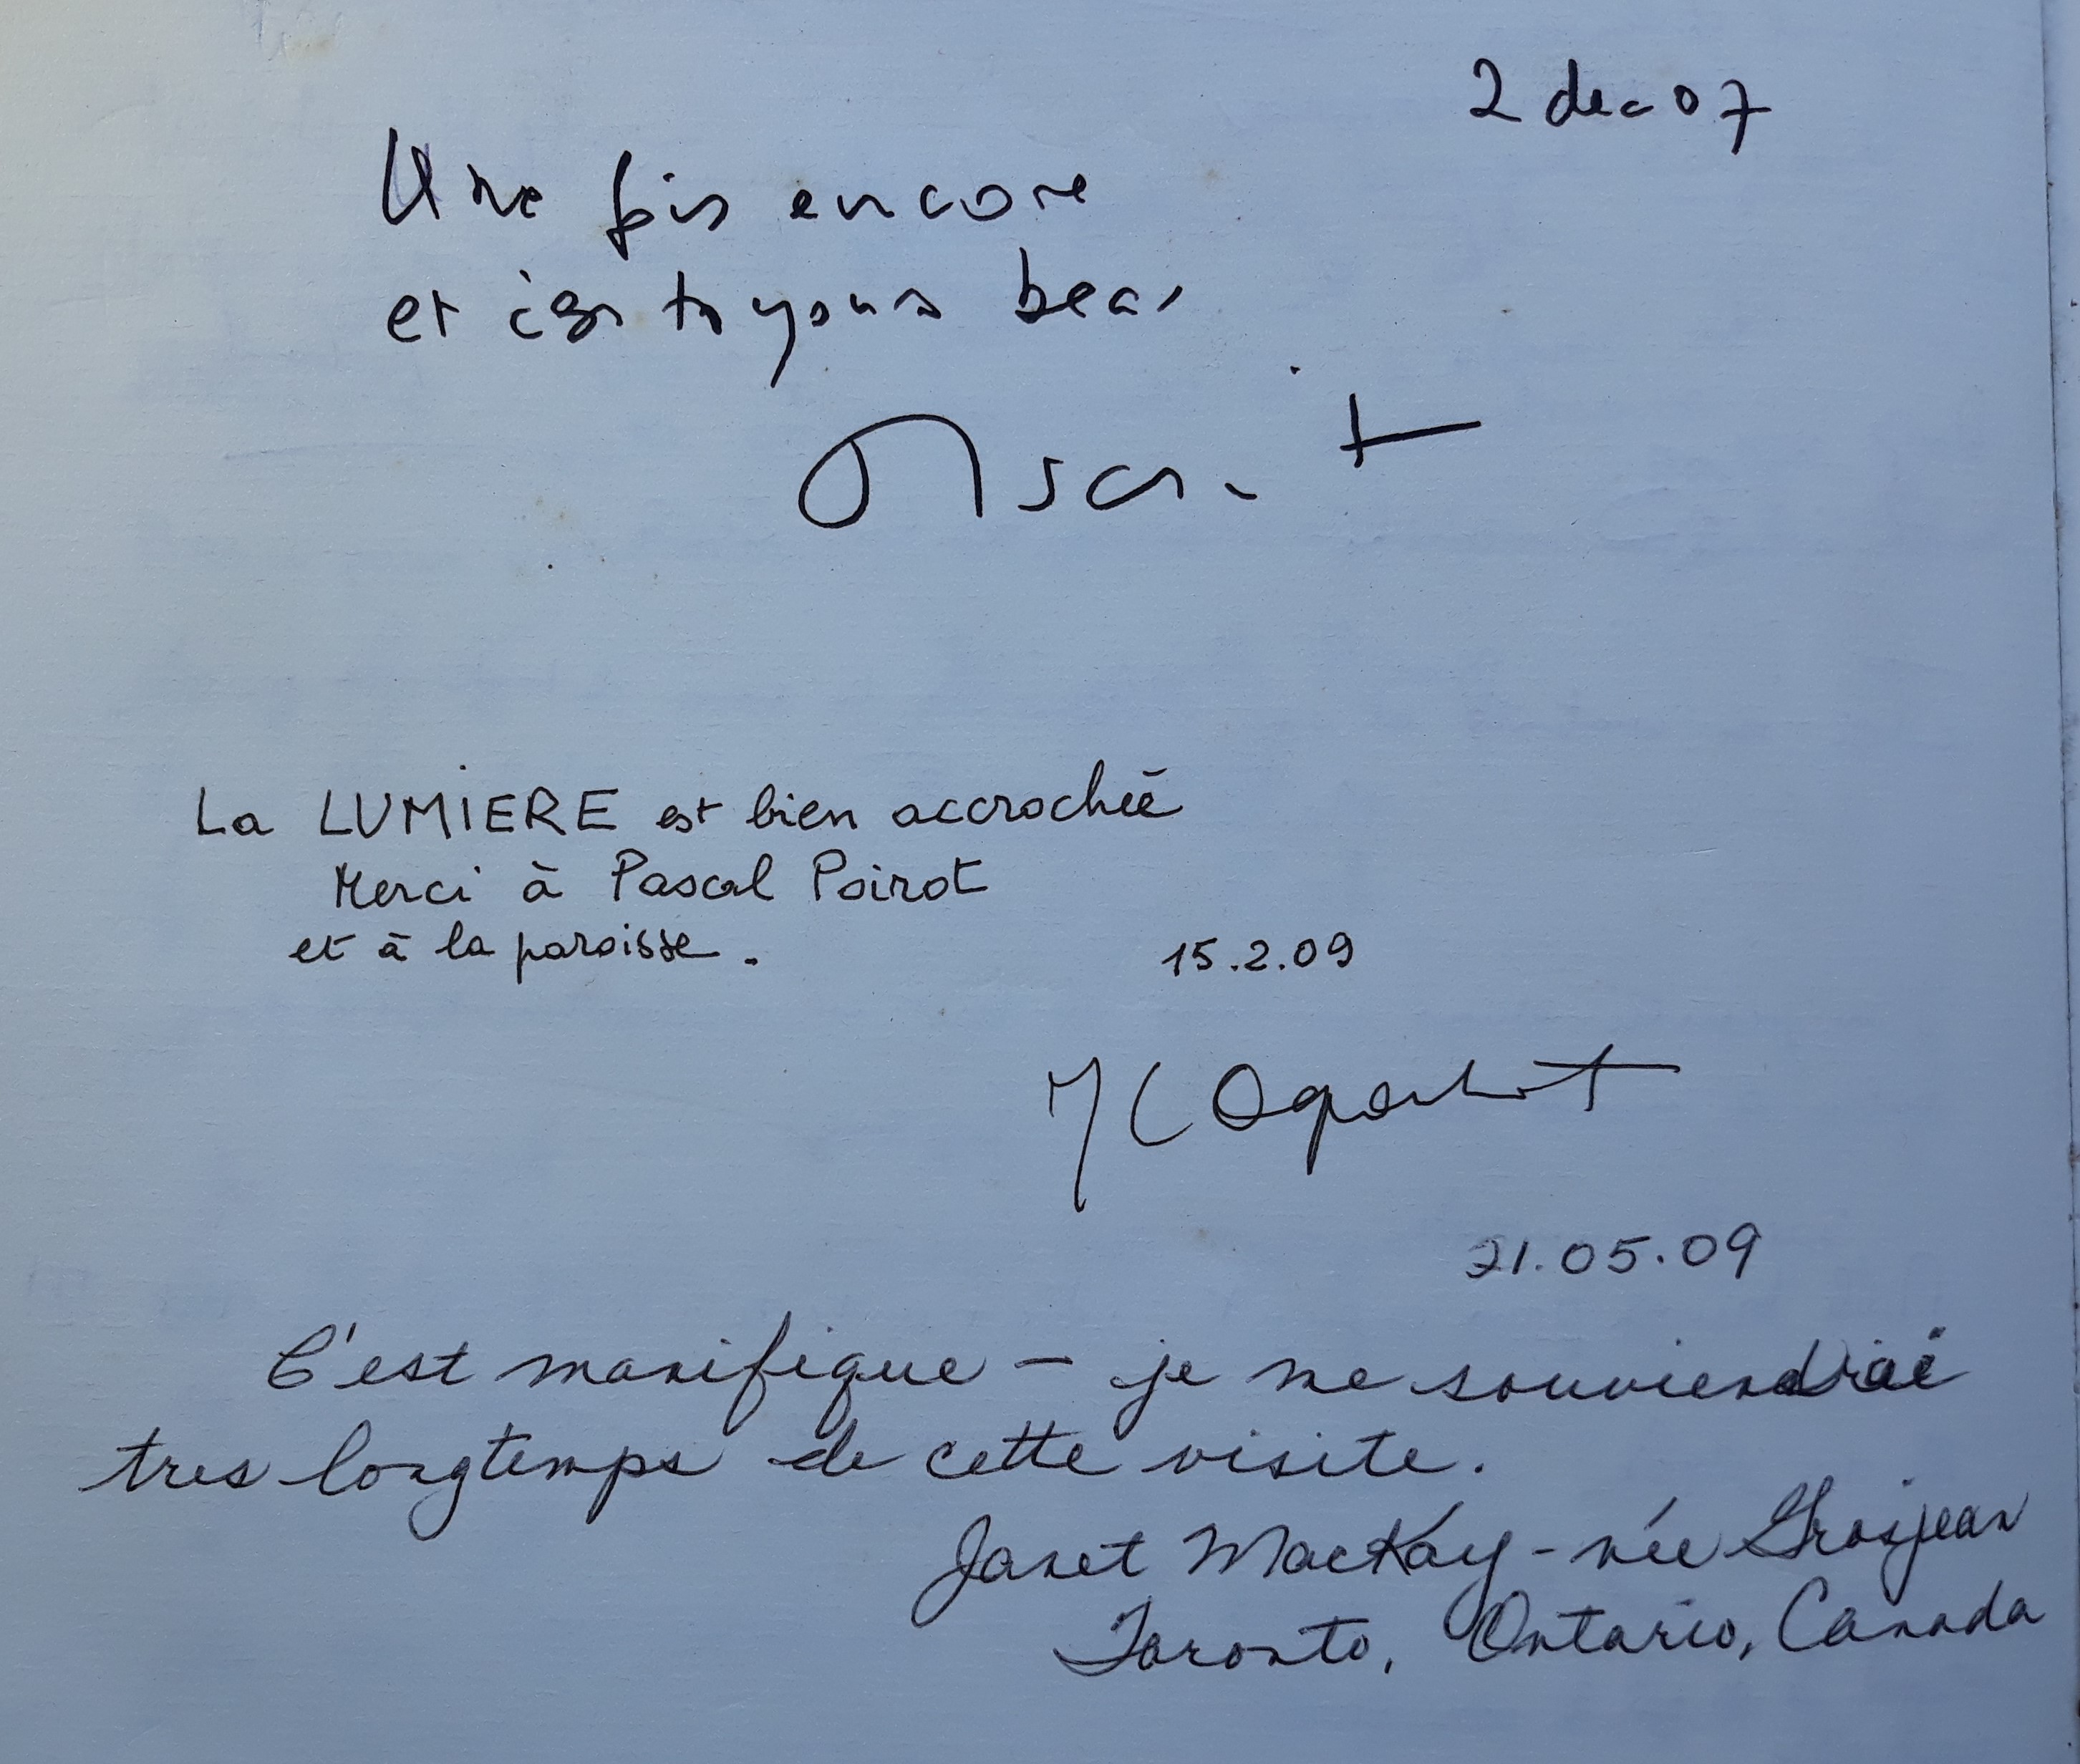 2 dec 07
Une fois encore
et c'est toujours beau
La LUMIERE est bien accrochée
Merci à Pascal Poirot
et à la paroisse.
15.2.09
21.05.09
C'est manifique – je me souviendrai
tres longtemps de cette visite.
Janet MacKay - née Grosjean
Toronto, Ontario, Canada